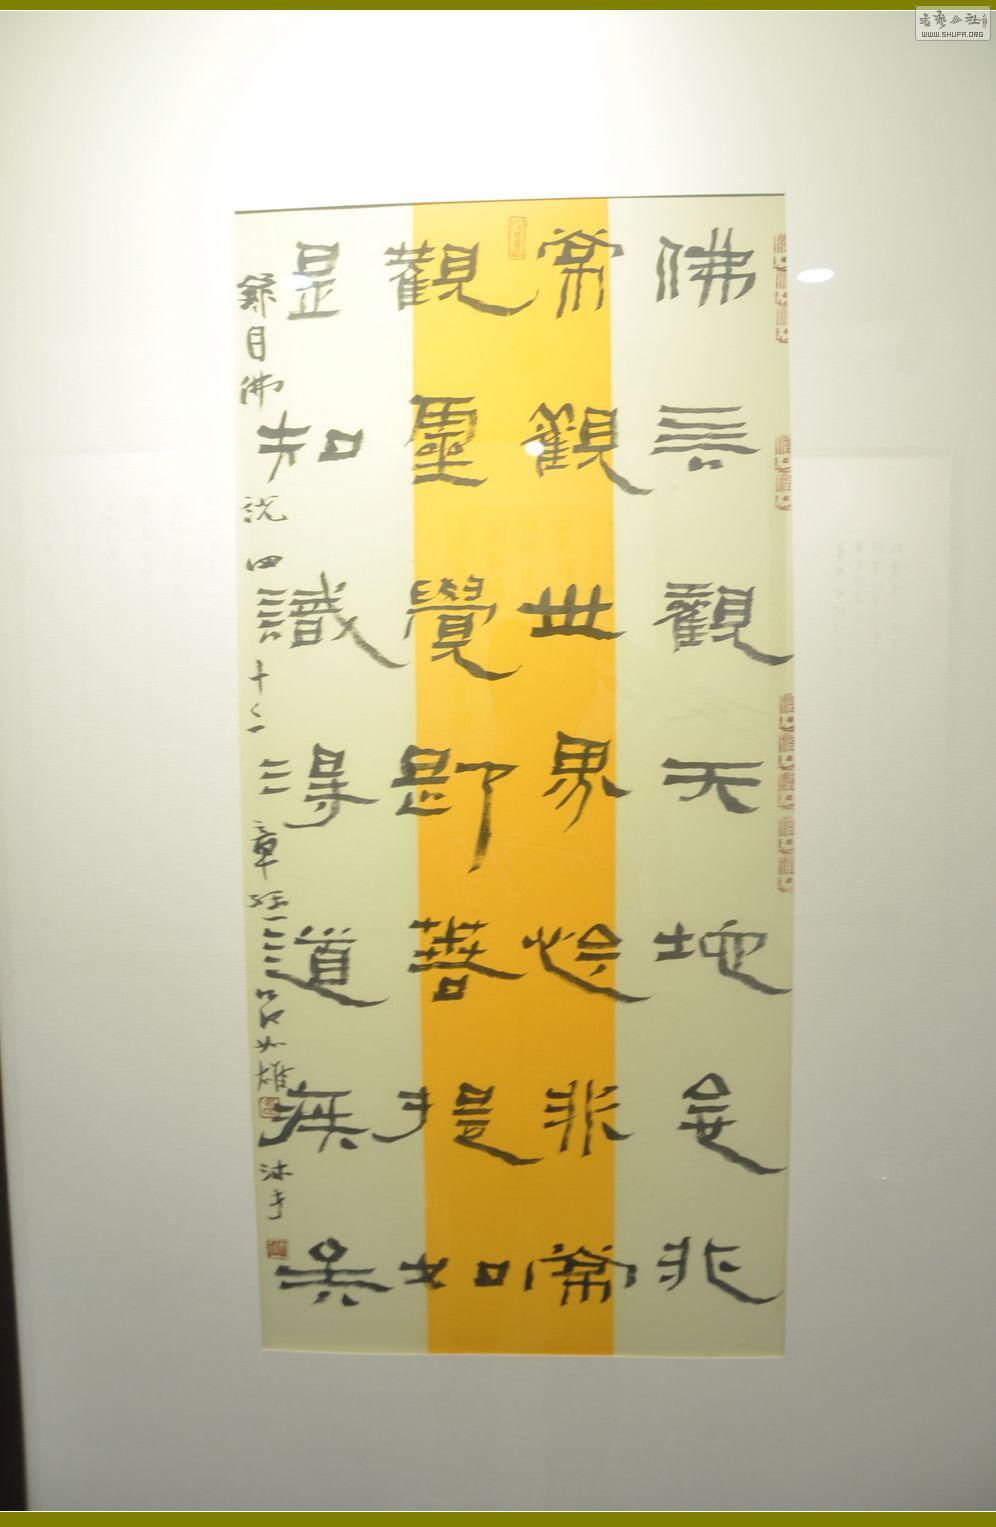 佛言觀天地念非
常觀世界念非常
觀靈覺即菩提如
是知識得道疾矣
錄自佛說四十二章經 呂如雄 沐手
WWW.SHUFA.ORG